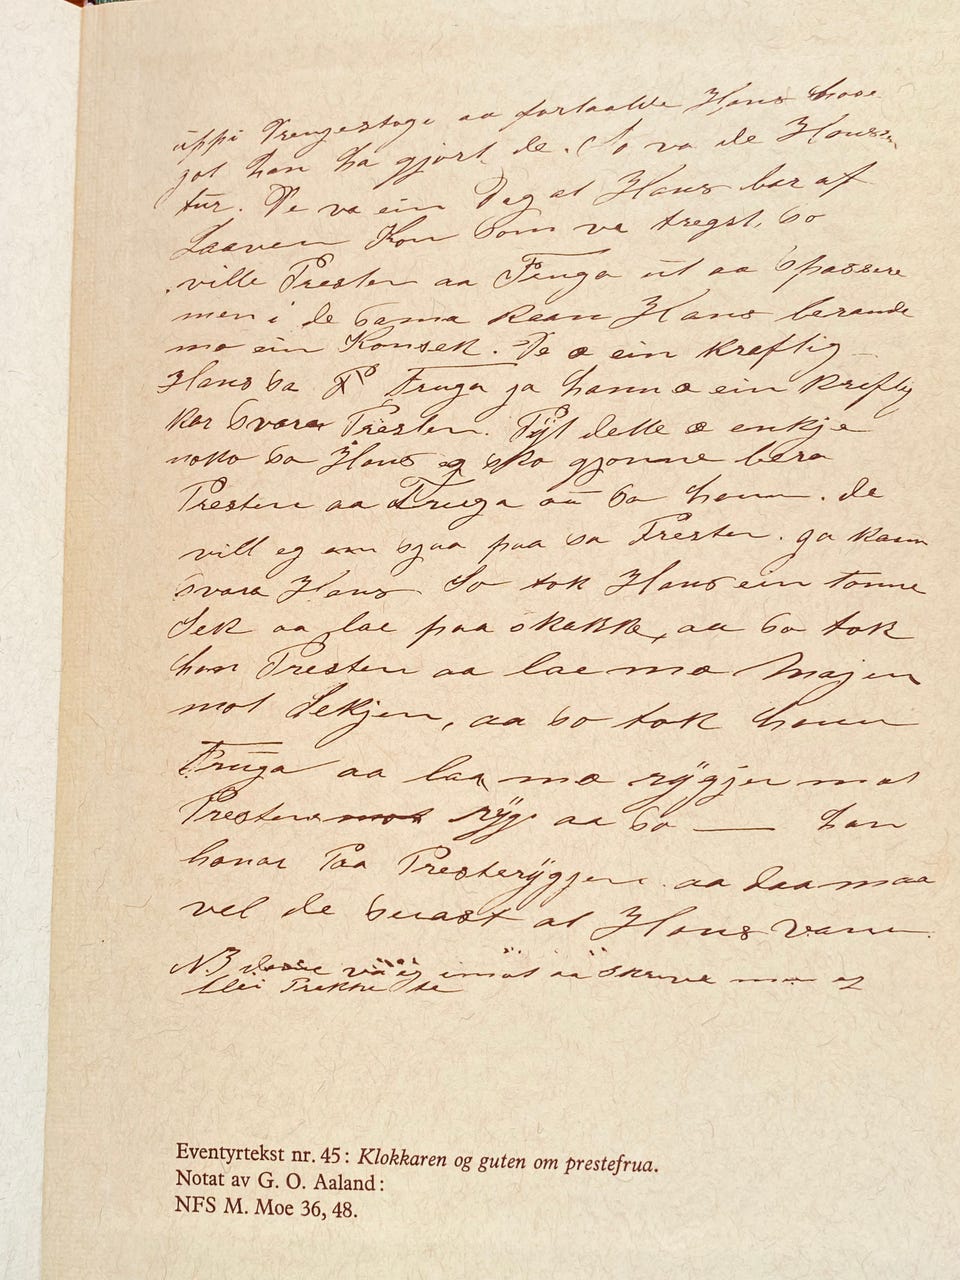 uppi Drengestogo aa fortaalde Hans
han ha gjort de. So va de Hans
tur. De va ein Dag at Hans bar af
Laaven Kon som va tregst, so
ville Presten aa Fruga ut aa spassere
men i de sama kaam Hans berande
mæ ein Konsek. De æ ein kreftig
Hans sa Fruga ja hann æ ein kreftig
kar svara Presten. Pyt dette æ enkje
noko sa Hans eg ska gjonne bera
Presten aa Fruga au sa hann. de
vill eg sjaa paa sa Presten. ja kann
svara Hans So tok Hans ein tonne
Sek aa lae paa skakke, aa so tok
han Presten aa lae mæ Majen
mot Sekjen, aa so tok hann
Fruga aa laa mæ rygjen mot
Prestens ryg aa so — han
honar paa Presterygjen. aa daa maa
vel de at Hans vann.
NB va eg imot aa skrive men eg
Trekkte
Eventyrtekst nr. 45: Klokkaren og guten om prestefrua.
Notat av G. O. Aaland:
NFS M. Moe 36, 48.